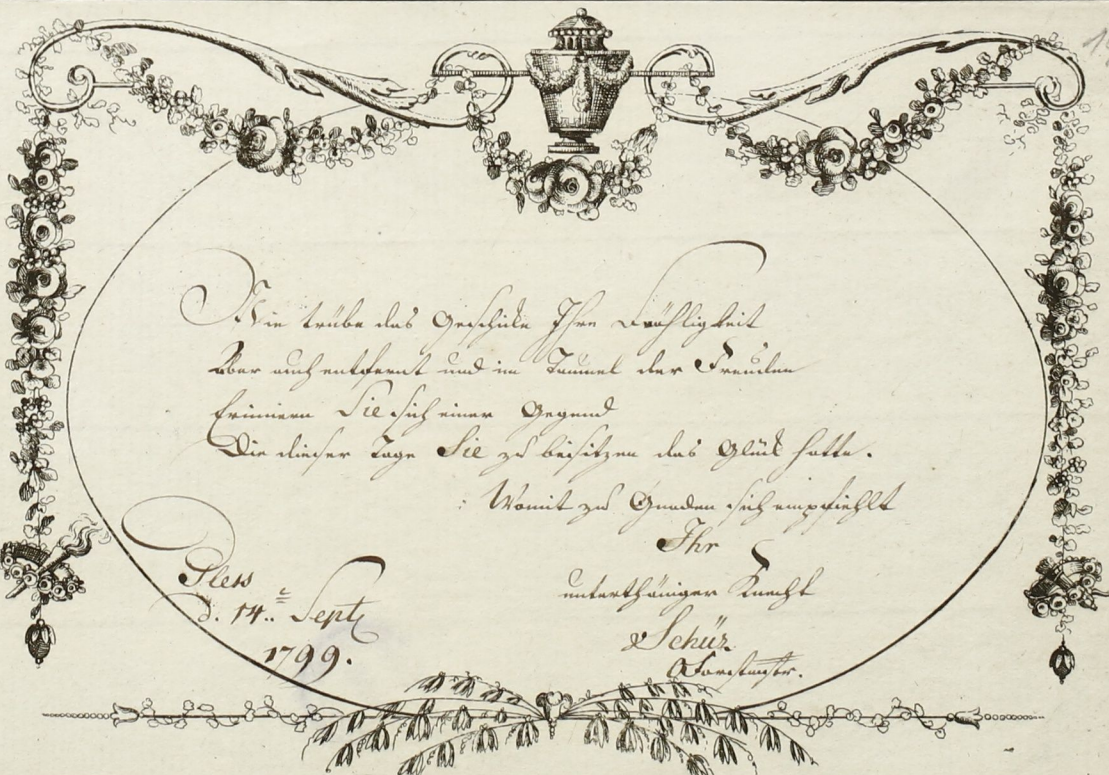 Nie trübe das Geschicke Ihre Fröhligkeit
Aber auch entfernt und im Taumel der Freuden
Erinnern Sie sich einer Gegend
Die dieser Tage Sie zu besitzen das Glück hatte.
Womit zu Gnaden sich empfiehlt
Ihr
unterthäniger Knecht
Schüz
Forstmstr.
Pless
d. 14.. Sept
1799.